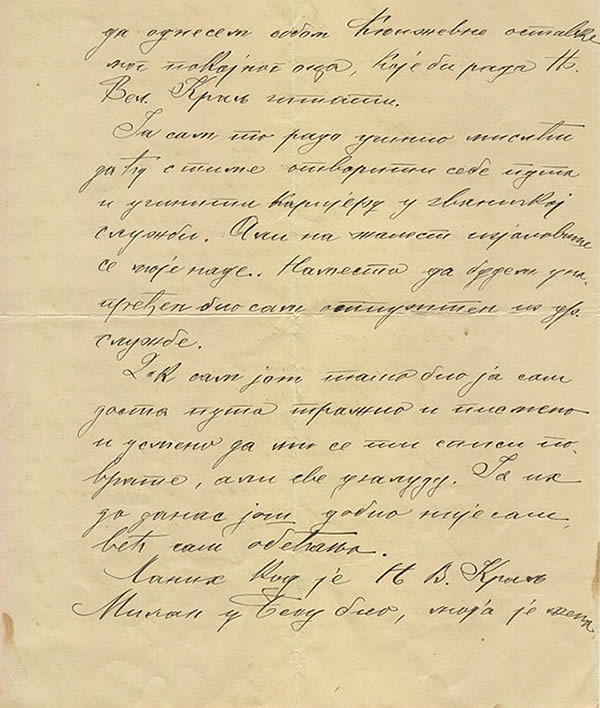 да однесем собом Књижевне оставке
мог покојног оца, које би рада Њ.
Вел. Краљ читати.
Ја сам то радо учинио мислећи
да ћу с тиме отворити себе пута
и учинити каријеру у званичкој
служби. Али на жалост изјаловише
се моје наде. Наместо да будем уна-
пређен био сам отпуштен из др.
службе.
Док сам још тамо био ја сам
доста пута тражио и писмено
и усмено да ми се ти списи по-
врате, али све узалуду. Ја их
до данас још добио нисам,
већ сам обећања.
Лањих кад је Њ В. Краљ
Милан у Бечу био, моја је жена